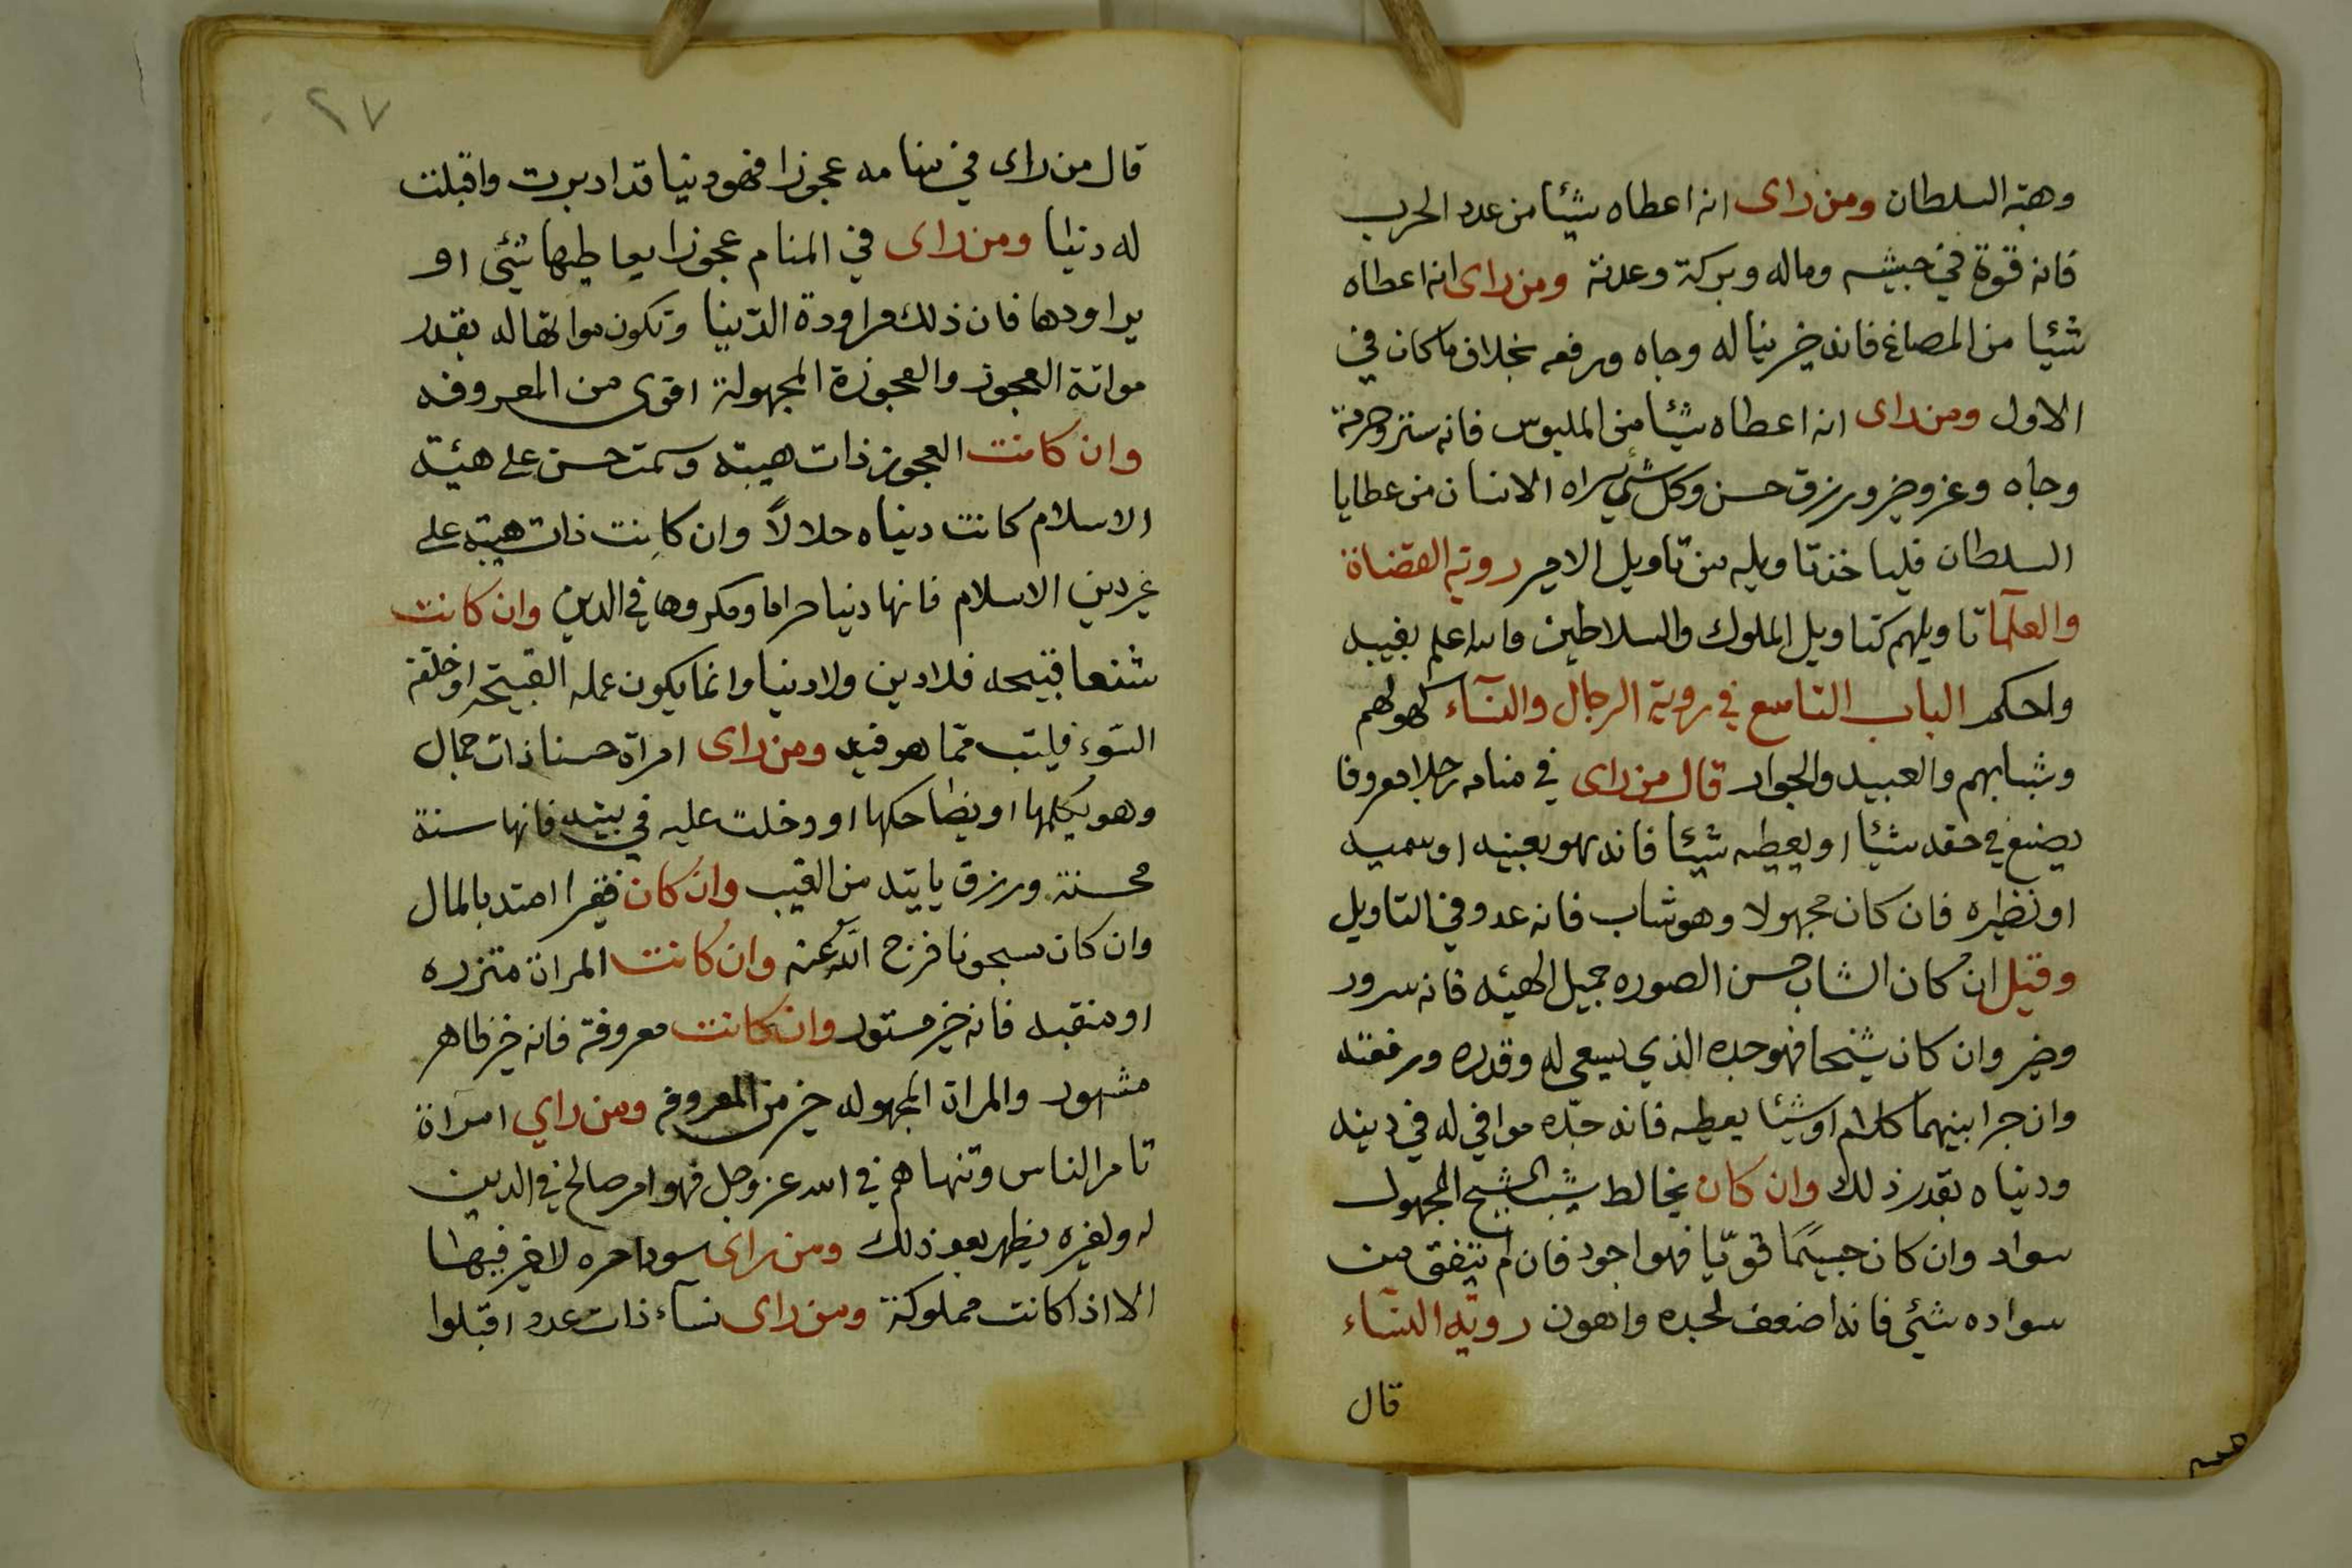 وهبة السلطان ومن راى انه اعطاه شيئا من عدد الحرب
فانه قوة في جيشه وماله وبركة وعدته ومن راى انه اعطاه
شئيا من المصاغ فانه خير يناله وجاه ورفعه بخلاف ما كان في
الاول ومن راى انه اعطاه شيئا من الملبوس فانه ستر وحرمة
وجاه وعز وخير ورزق حسن وكل شئ يراه الانسان من عطايا
السلطان فلياخذ تاويله من تاويل الامير روية القضاة
والعلمآ تاويلهم كتاويل الملوك والسلاطين والله اعلم بغيبه
واحكم الباب التاسع في روية الرجال والنسآء كهولهم
وشبابهم والعبيد والجوار قال من راى في منامه رجلا معروفا
يصنع في حقه شيئا او يعطيه شيئا فانه هو بعينه او سميه
او نظيره فان كان مجهولا وهو شاب فانه عدو في التاويل
وقيل ان كان الشاب حسن الصوره جميل الهيئه فانه سرور
وخير وان كان شيخا فهو جده الذي يسعى له وقدره ورفعته
وان جرا بينهما كلام او شيئا يعطيه فانه جدّه موافي له في دينه
ودنياه بقدر ذلك وان كان يخالط شيب الشيخ المجهول
سواد وان كان جسيمًا قويّا فهو اجود فان لم يتفق من
سواده شئي فانه اضعف لجده واهون روية النسآء
قال
٢٧
قال من راى في منامه عجوزا فهو دنيا قد ادبرت واقبلت
له دنيا ومن راى في المنام عجوزا يعاطيها شئي او
يراودها فان ذلك مراودة الدّنيا وتكون مواتها له بقدر
مواتة العجوز والعجوزة المجهولة اقوى من المعروفه
وان كانت العجوز ذات هيبة وسمت حسن على هيئة
الاسلام كانت دنياه حلالاً وان كانت ذات هيبة على
غير دين الاسلام فانها دنيا حراما ومكروها في الدين وان كانت
شنعا قبيحه فلا دين ولا دنيا وانما يكون عمله القبيح او خلقة
السّوء فليتب ممّا هو فيه ومن راى امراة حسنا ذات جمال
وهو يكلمها او يضاحكها او دخلت عليه في بيته فانها سنة
محسنة ورزق ياتيه من الغيب وان كان فقيرا امتد بالمال
وان كان سجونا فرج الله عنه وان كانت المراة متزره
او منقبه فانه خير مستور وان كانت معروفة فانه خير ظاهر
مشهور والمراة المجهوله خير من المعروفه ومن راي امراة
تامر الناس وتنهاهم في الله عز وجل فهو امر صالح في الدين
له ولغيره يظهر بعد ذلك ومن راى سودا حره لا خير فيها
الا اذا كانت مملوكة ومن راى نسآء ذات عدد اقبلوا